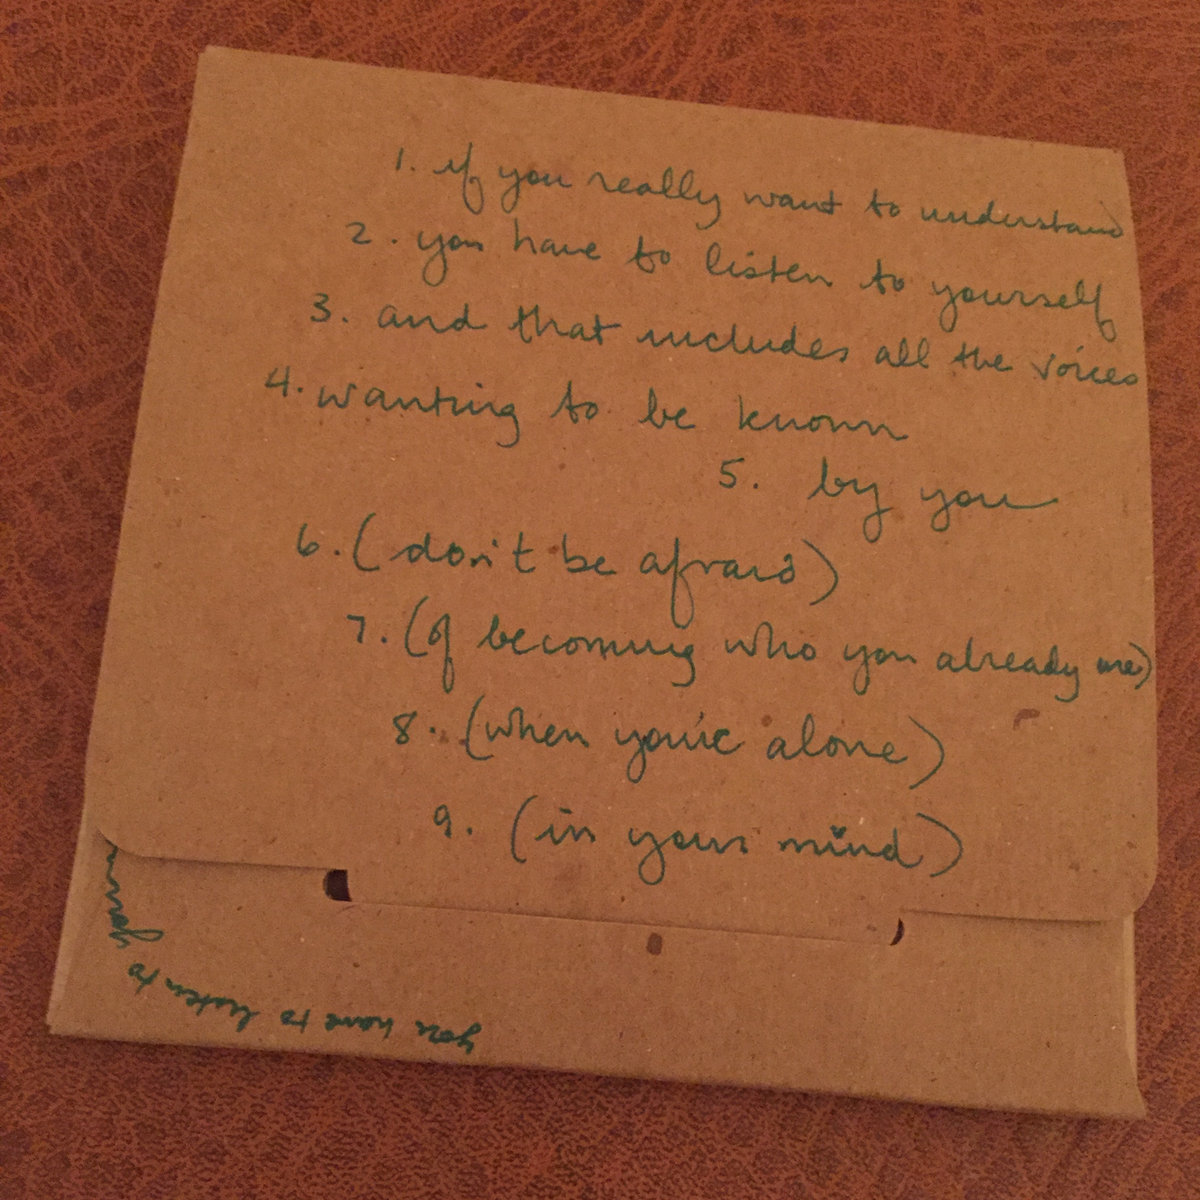 1. if you really want to understand
2. you have to listen to yourself
3. and that includes all the voices
4. wanting to be known
5. by you
6. (don't be afraid)
7. (of becoming who you already are)
8. (when you're alone)
9. (in your mind)
you have to listen to your